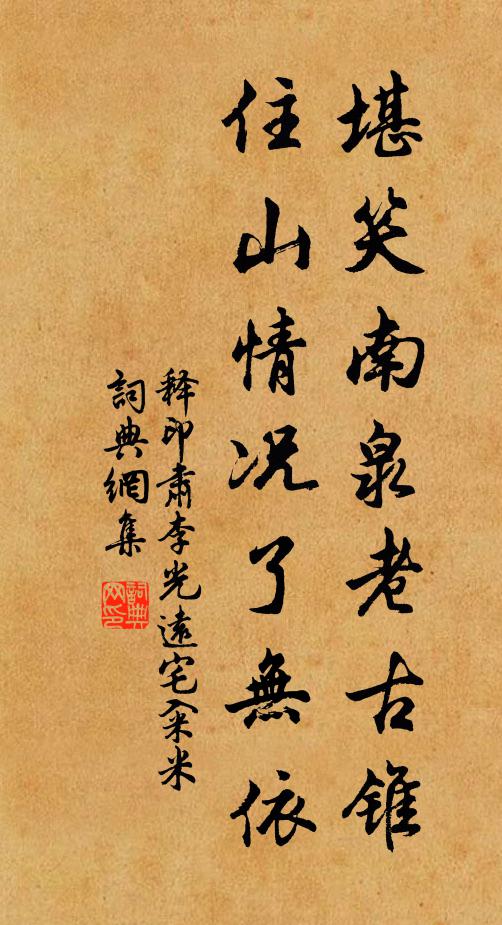 堪笑南泉老古錐
住山情况了無依
释印肅李光遠宅籴米
詞典網集
詞典
网印